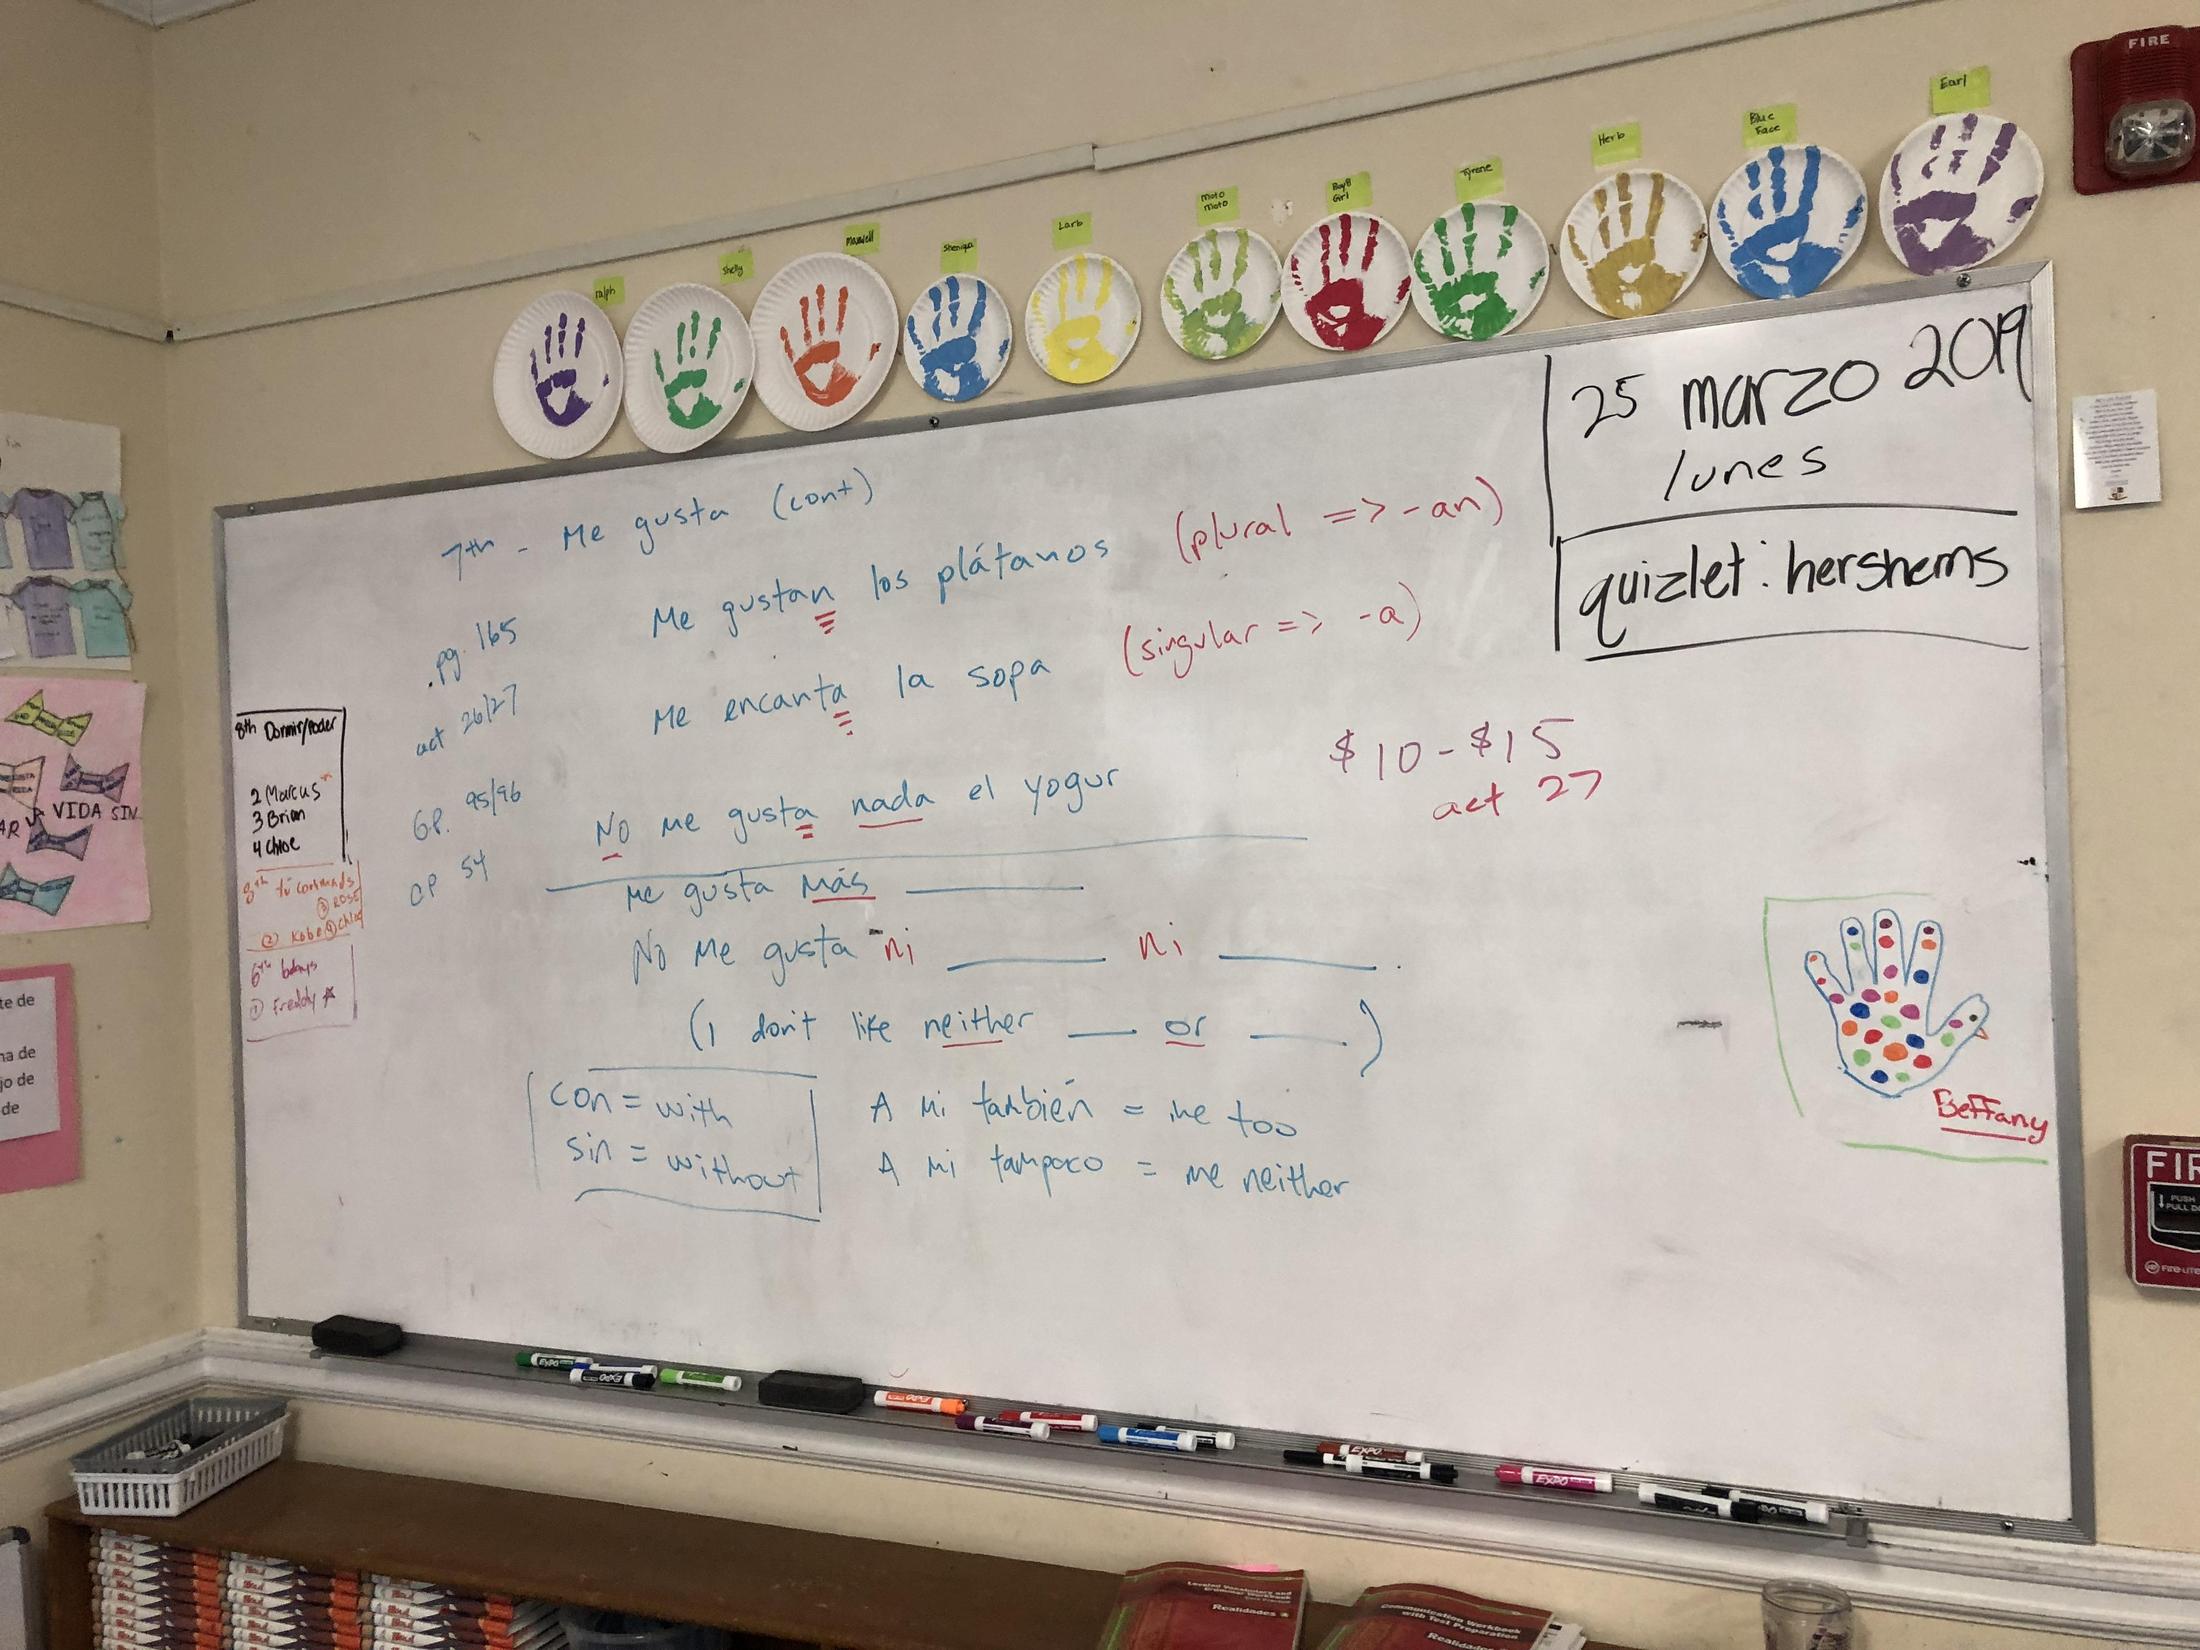 ralph
Shelly
Maxwell
Sheniqua
Larb
Moto
Moto
Girl
Tyrone
Herb
Blue
Face
Earl
FIRE
25 marzo 2019
lunes
quizlet: hershems
7th - Me gusta (cont)
Me gustan los plátanos (plural => -an)
Me encanta la sopa (singular => -a)
No me gusta nada el yogur
Me gusta más
No me gusta ni ____ ni ____.
(I don't like neither ___ or ___)
con = with
sin = without
A mi también = me too
A mi tampoco = me neither
.pg. 165
act 26/27
G.P. 95/96
CP 54
$10-$15
act 27
8th Dormir/poder
2 Marcus
3 Brian
4 Chloe
8th tú commands
③ ROSE
② Kobe ④ Chloe
6th bdays
① Freddy
Beffany
VIDA SIN
AR
te de
na de
jo de
de
FIR
PUSH
PULL D
FIRE-LITE
EXPO
EXPO
EXPO
EXPO
EXPO
Leveled Vocabulary and
Grammar Workbook
Realidades
Communication Workbook
with Test Preparation
Realidades